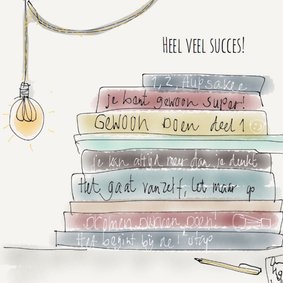 HEEL VEEL SUCCES!
1, 2, Hupsakee
je bent gewoon super!
GEWOON DOEN deel 1
je kan altijd meer dan je denkt
Het gaat vanzelf, let maar op
DROMEN DURVEN DOEN!
Het begint bij de 1e stap